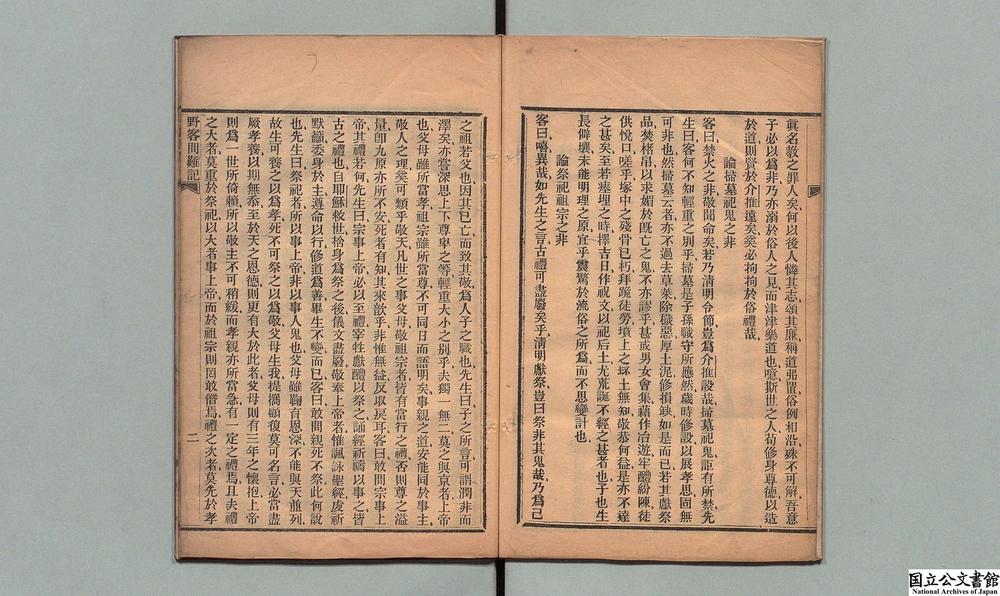 眞名敎之罪人矣何以後人憐其志頌其廉稱道弗置俗例相沿殊不可解吾意
子必以爲非乃亦溺於俗人之見而津津樂道也噫斯世之人苟修身尊德以造
於道則賢於介推遠矣奚必拘拘於俗禮哉
論掃墓祀鬼之非
客曰禁火之非敬聞命矣若乃淸明令節豈爲介推設哉掃墓祀鬼詎有所禁先
生曰客何不知輕重之別乎掃墓是子孫職守所應然歲時修設以展孝思固無
可非也然掃墓云者亦不過去草萊除穢惡厚土泥修損缺如是而已若其獻祭
品焚楮帛以求媚於旣亡之鬼不亦謬乎甚或男女會集藉作冶遊牢醴紛陳徒
供悅口嗟乎塚中之殘骨已朽拜跪徒勞墳上之坏土無知敬恭何益是亦不達
之甚矣至若瘞埋之時擇吉日作祝文以祀后土尤荒誕不經之甚者也子也生
長僻壤未能明理之原宜乎震驚於流俗之所爲而不思變計也
論祭祀祖宗之非
客曰嘻異哉如先生之言古禮可盡廢矣乎淸明獻祭豈曰祭非其鬼哉乃爲己
之祖若父也因其已亡而致其敬爲人子之職也先生曰子之所言可謂潤非而
澤矣亦嘗深思上下尊卑之等輕重大小之別乎夫獨一無二莫之與京者上帝
也父母雖所當孝祖宗雖所當尊不可同日而語明矣事親之道安能同於事主
敬人之理矣可類乎敬天凡世之事父母敬祖宗者皆有當行之禮否則尊之溢
量卽九原亦所不安死者有知其來歆乎非惟無益反取戾耳客曰敢問宗事上
帝其禮若何先生曰宗事上帝必以至禮宰牲獻醴以祭之誦經祈禱以事之皆
古之禮也自耶穌救世捨身爲祭之後儀文盡廢敬奉上帝者惟諷詠聖經虔祈
默籲委身於主遵命以行修道爲善畢生不變而已客曰敢問親死不祭此何說
也先生曰祭祀者所以事上帝非以事人鬼也父母雖鞠育恩深不能與天並列
故生可養之以爲孝死不可祭之以爲敬父母生我提攜顧復莫可名言必當盡
厥孝養以期無忝至於天之恩德則更有大於此者父母則有三年之懷抱上帝
則爲一世所倚賴所以敬主不可稍緩而孝親亦所當急有一定之禮焉且夫禮
之大者莫重於祭祀以大者事上帝而於祖宗則罔敢僭焉禮之次者莫先於孝
野客問難記
二
国立公文書館
National Archives of Japan